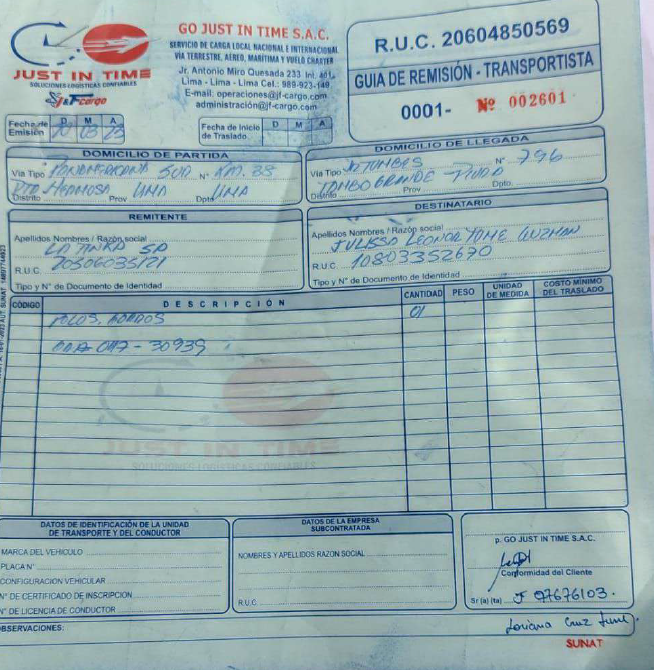 GO JUST IN TIME S.A.C.
SERVICIO DE CARGA LOCAL NACIONAL E INTERNACIONAL
VIA TERRESTRE, AEREO, MARITIMA Y VUELO CHARTER
Jr. Antonio Miro Quesada 233 Int. 401
Lima - Lima - Lima Cel.: 989-923-149
E-mail: operaciones@jf-cargo.com
administración@jf-cargo.com
JUST IN TIME
SOLUCIONES LOGISTICAS CONFIABLES
J&F cargo
R.U.C. 20604850569
GUIA DE REMISIÓN - TRANSPORTISTA
0001- Nº 002601
Fecha de Emisión D M A
10 03 23
Fecha de Inicio de Traslado. D M A
DOMICILIO DE PARTIDA
Via Tipo Panamericana Sur Nº Km. 38
Pto Hermosa Lima Lima
Distrito Prov Dpto
DOMICILIO DE LLEGADA
Via Tipo Jr Tumbes Nº 796
Tambogrande - Piura
Distrito Prov Dpto.
REMITENTE
Apellidos Nombres / Razón social
La Tinka SA
R.U.C. 20506035121
Tipo y N° de Documento de Identidad
DESTINATARIO
Apellidos Nombres / Razón social
Julissa Leonor Yame Guzman
R.U.C. 10803352670
Tipo y N° de Documento de Identidad
CÓDIGO DESCRIPCIÓN CANTIDAD PESO UNIDAD DE MEDIDA COSTO MINIMO DEL TRASLADO
01
- 30939
JUST IN TIME
SOLUCIONES LOGISTICAS CONFIABLES
DATOS DE IDENTIFICACIÓN DE LA UNIDAD
DE TRANSPORTE Y DEL CONDUCTOR
MARCA DEL VEHICULO
PLACA N°
CONFIGURACION VEHICULAR
N° DE CERTIFICADO DE INSCRIPCION
N° DE LICENCIA DE CONDUCTOR
DATOS DE LA EMPRESA
SUBCONTRATADA
NOMBRES Y APELLIDOS RAZON SOCIAL
R.U.C
p. GO JUST IN TIME S.A.C.
Conformidad del Cliente
Sr (a) (ta) 97676103.
OBSERVACIONES:
Cruz
SUNAT